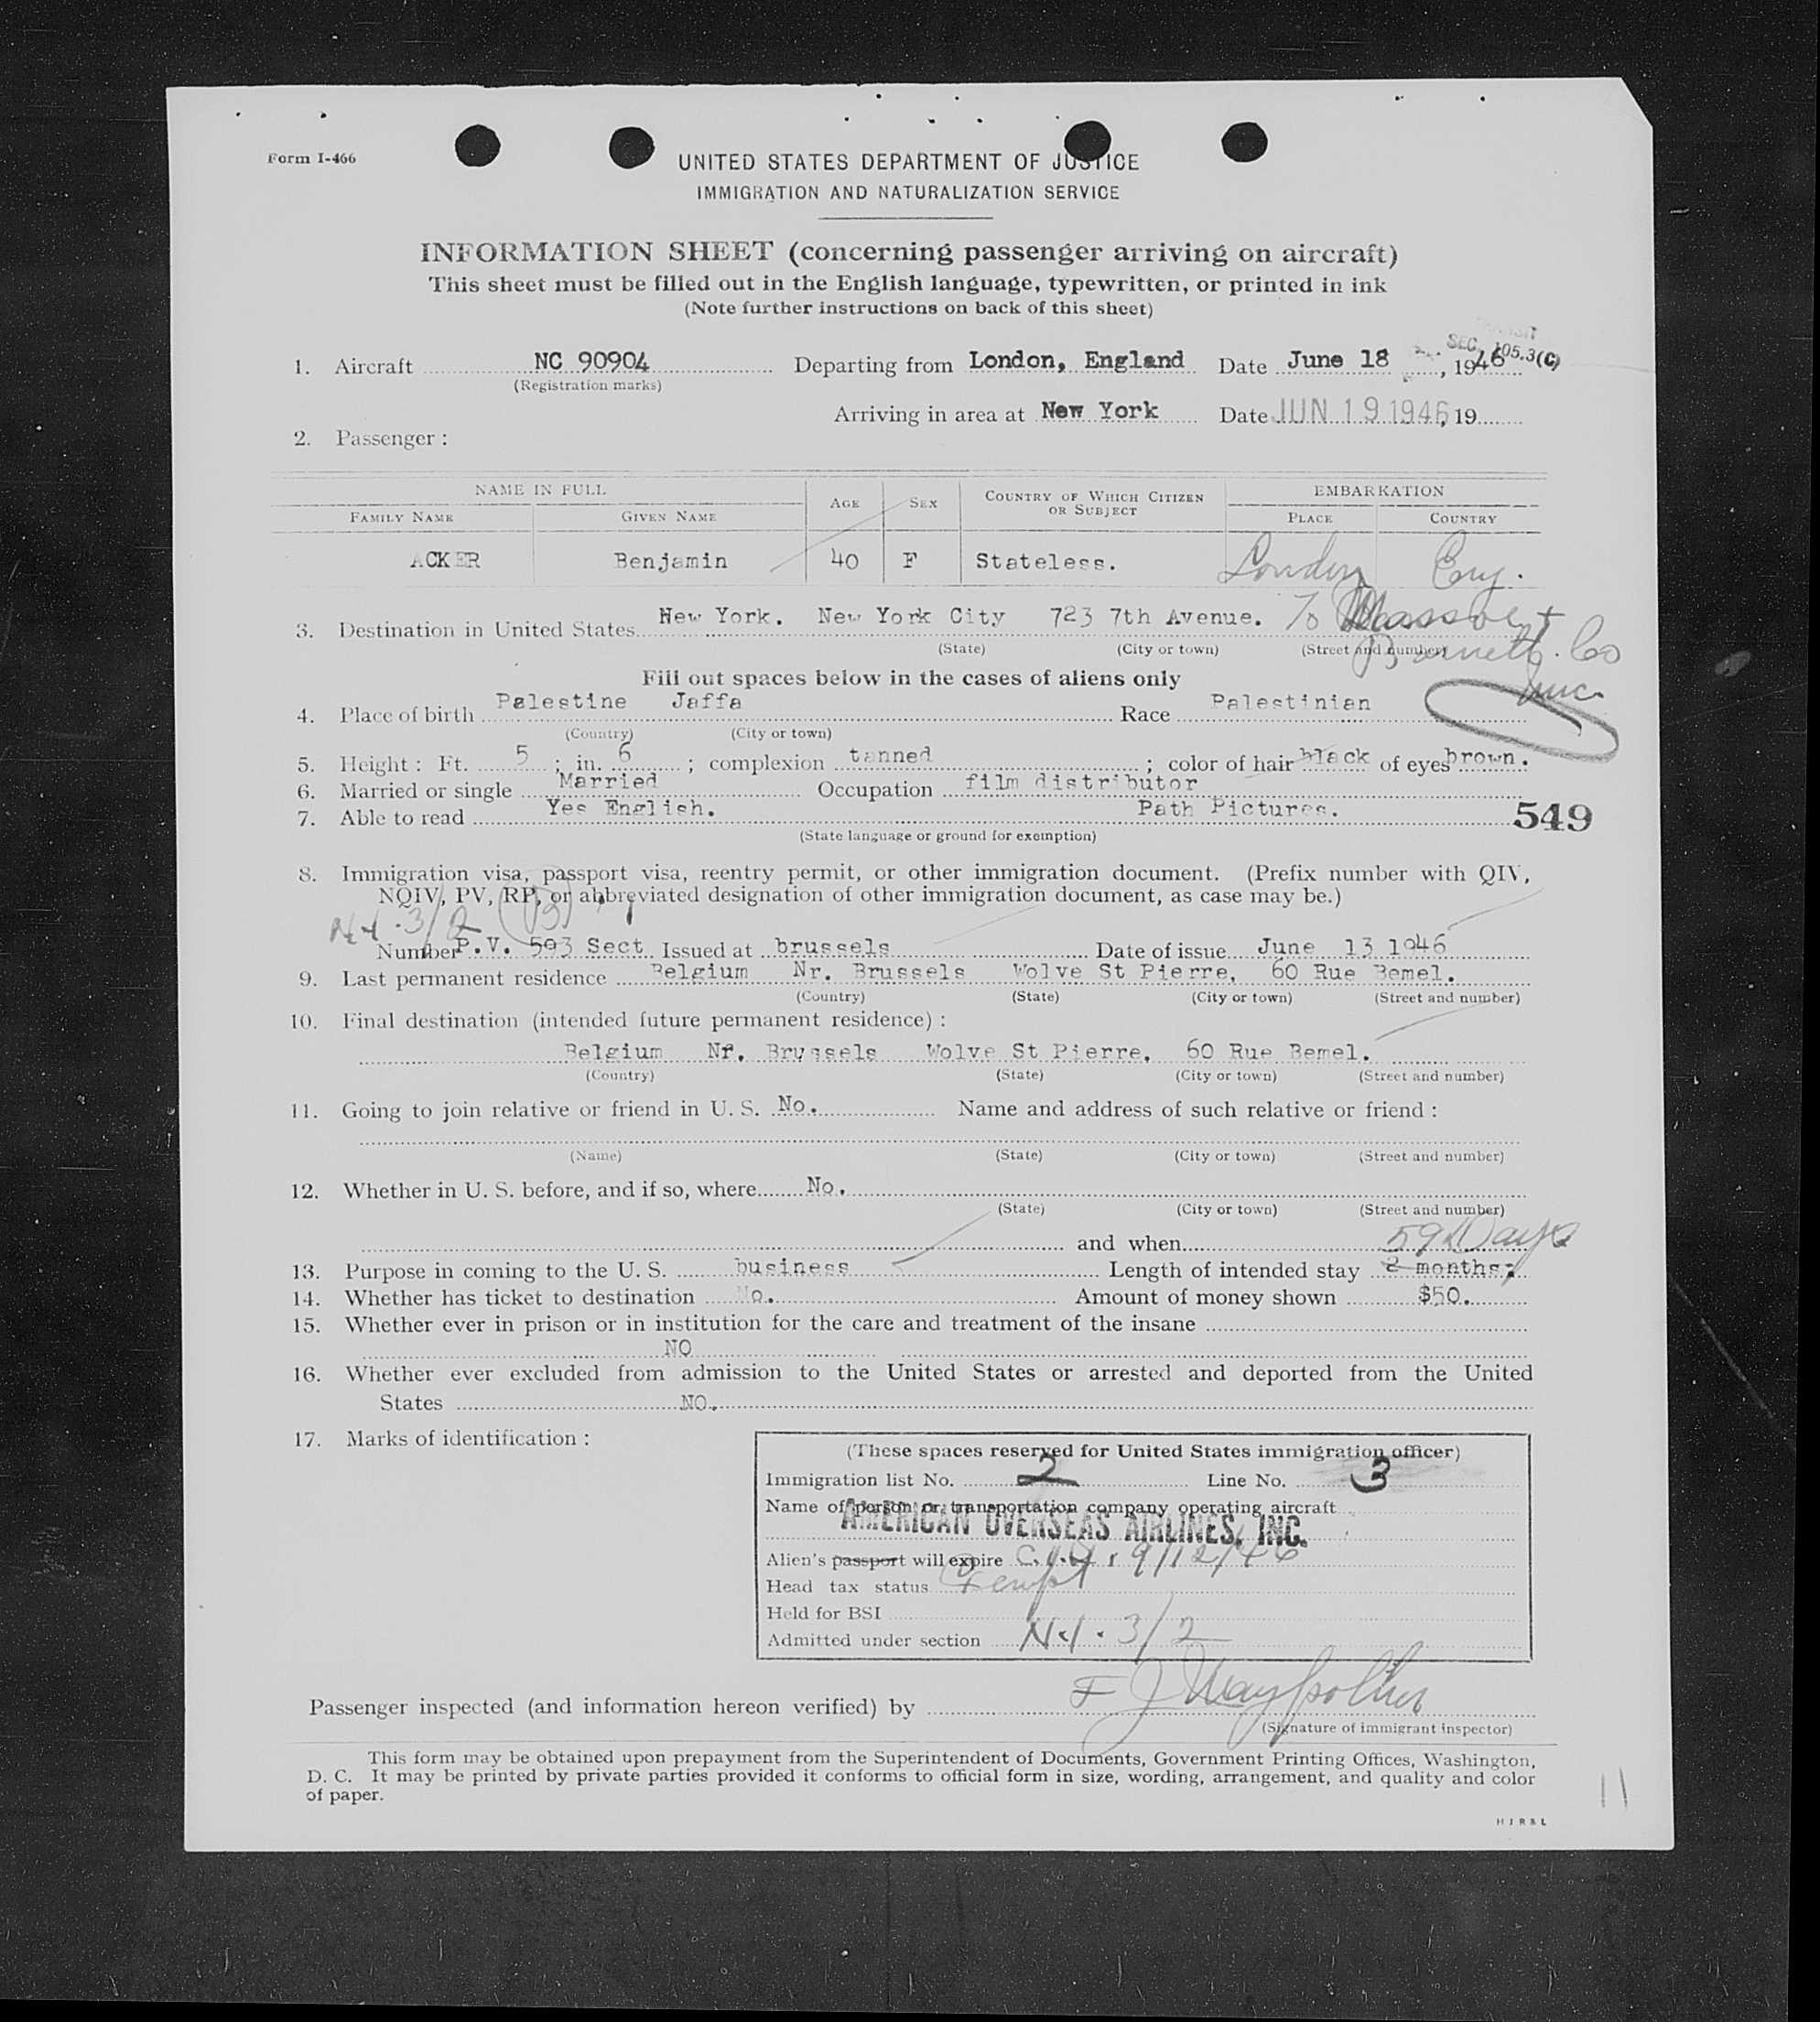 Form I-466
UNITED STATES DEPARTMENT OF JUSTICE
IMMIGRATION AND NATURALIZATION SERVICE
INFORMATION SHEET (concerning passenger arriving on aircraft)
This sheet must be filled out in the English language, typewritten, or printed in ink
(Note further instructions on back of this sheet)
SEC. 105.3(C)
1. Aircraft NC 90904 Departing from London, England Date June 18, 1946
(Registration marks)
Arriving in area at New York Date JUN 19 1946, 19
2. Passenger:
NAME IN FULL AGE SEX COUNTRY OF WHICH CITIZEN OR SUBJECT EMBARKATION
FAMILY NAME GIVEN NAME PLACE COUNTRY
ACKER Benjamin 40 F Stateless. London Eng.
3. Destination in United States New York. New York City 723 7th Avenue. % Massoe &
(State) (City or town) (Street and number) Barnett. Co
Inc.
Fill out spaces below in the cases of aliens only
4. Place of birth Palestine Jaffa Race Palestinian
(Country) (City or town)
5. Height: Ft. 5; in. 6; complexion tanned; color of hair black of eyes brown.
6. Married or single Married Occupation film distributor
7. Able to read Yes English. Path Pictures. 549
(State language or ground for exemption)
8. Immigration visa, passport visa, reentry permit, or other immigration document. (Prefix number with QIV,
NQIV, PV, RP, or abbreviated designation of other immigration document, as case may be.)
3/2
Number P.V. 593 Sect Issued at brussels Date of issue June 13 1946
9. Last permanent residence Belgium Nr. Brussels Wolve St Pierre, 60 Rue Bemel.
(Country) (State) (City or town) (Street and number)
10. Final destination (intended future permanent residence):
Belgium Nr. Brussels Wolve St Pierre, 60 Rue Bemel.
(Country) (State) (City or town) (Street and number)
11. Going to join relative or friend in U. S. No. Name and address of such relative or friend:
(Name) (State) (City or town) (Street and number)
12. Whether in U. S. before, and if so, where No.
(State) (City or town) (Street and number)
and when 59 Days
13. Purpose in coming to the U. S. business Length of intended stay 2 months;
14. Whether has ticket to destination No. Amount of money shown $50.
15. Whether ever in prison or in institution for the care and treatment of the insane
NO
16. Whether ever excluded from admission to the United States or arrested and deported from the United
States NO.
17. Marks of identification:
(These spaces reserved for United States immigration officer)
Immigration list No. 2 Line No. 3
Name of person or transportation company operating aircraft
AMERICAN OVERSEAS AIRLINES, INC.
Alien's passport will expire 9/12/46
Head tax status Exempt
Held for BSI
Admitted under section 3/2
Passenger inspected (and information hereon verified) by F J
(Signature of immigrant inspector)
This form may be obtained upon prepayment from the Superintendent of Documents, Government Printing Offices, Washington,
D. C. It may be printed by private parties provided it conforms to official form in size, wording, arrangement, and quality and color
of paper.
11